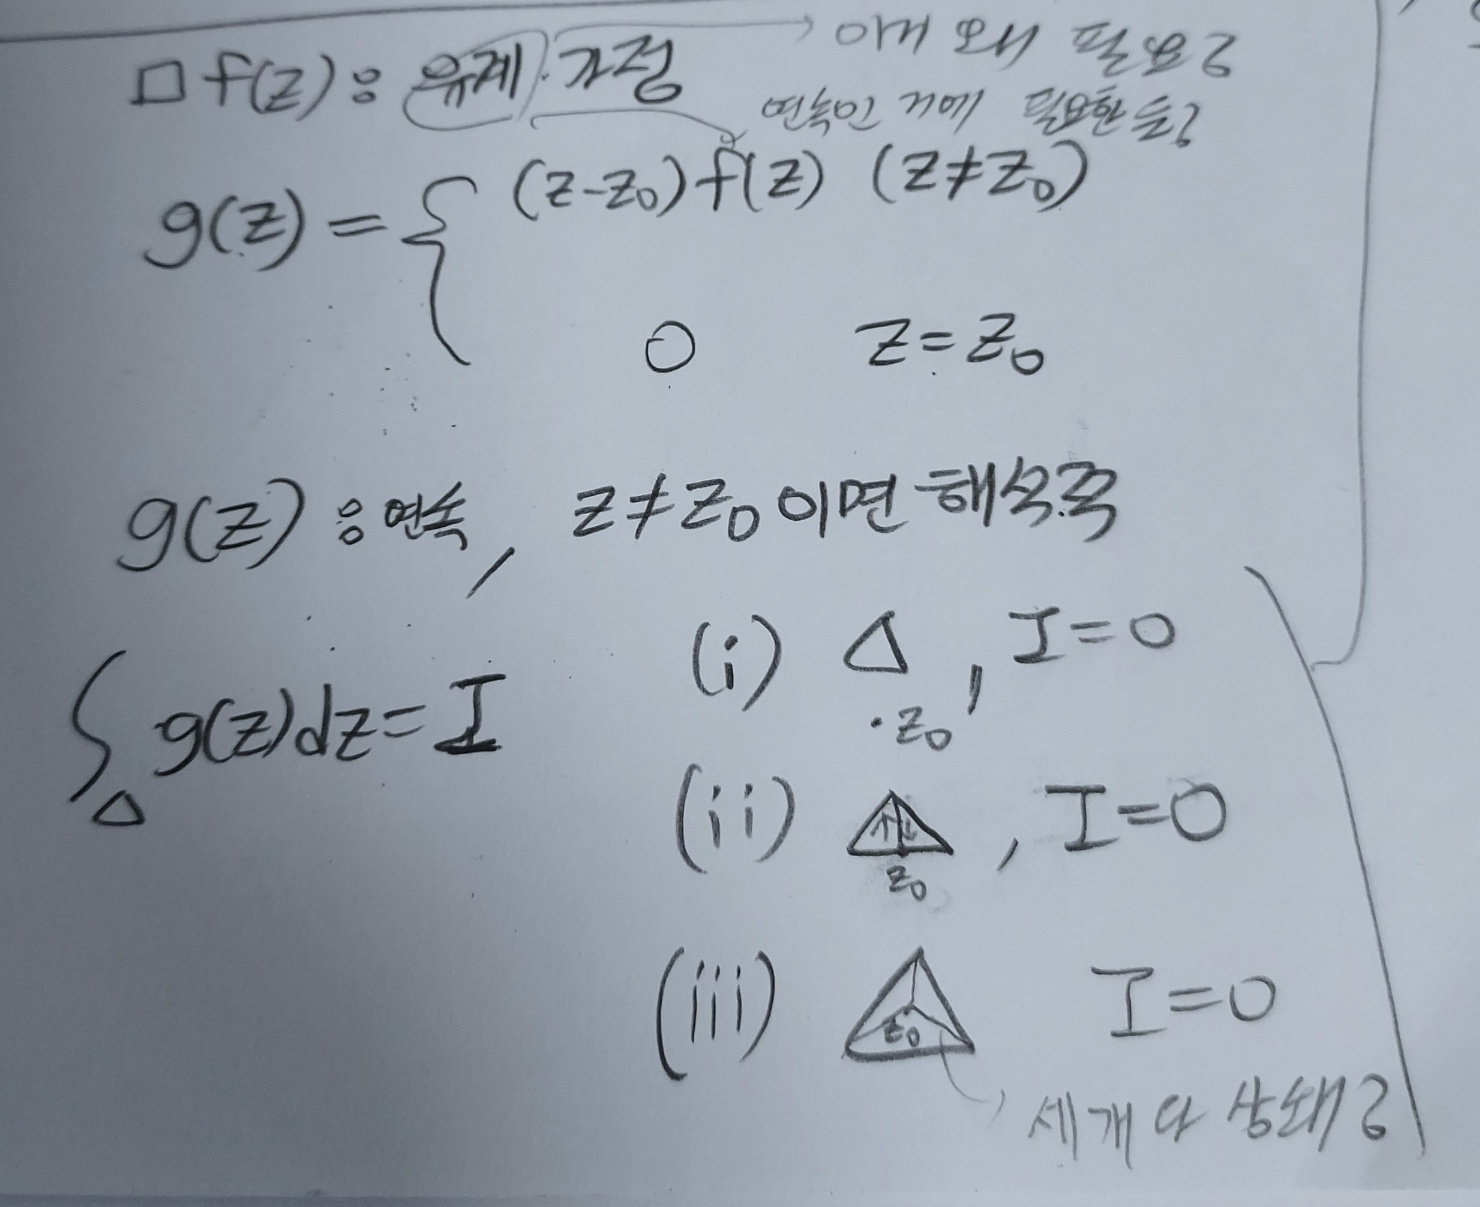 □ f(z) : 유계 가정 → 애써 왜 필요?
연속인 거에 필요한 듯?
g(z) = { (z-z₀) f(z) (z≠z₀)
0 z=z₀
g(z) : 연속, z≠z₀ 이면 해석쪽
∫△ g(z)dz = I
(i) △ ·z₀, I=0
(ii) △ z₀, I=0
(iii) △ z₀ I=0
→ 세개 다 상쇄?